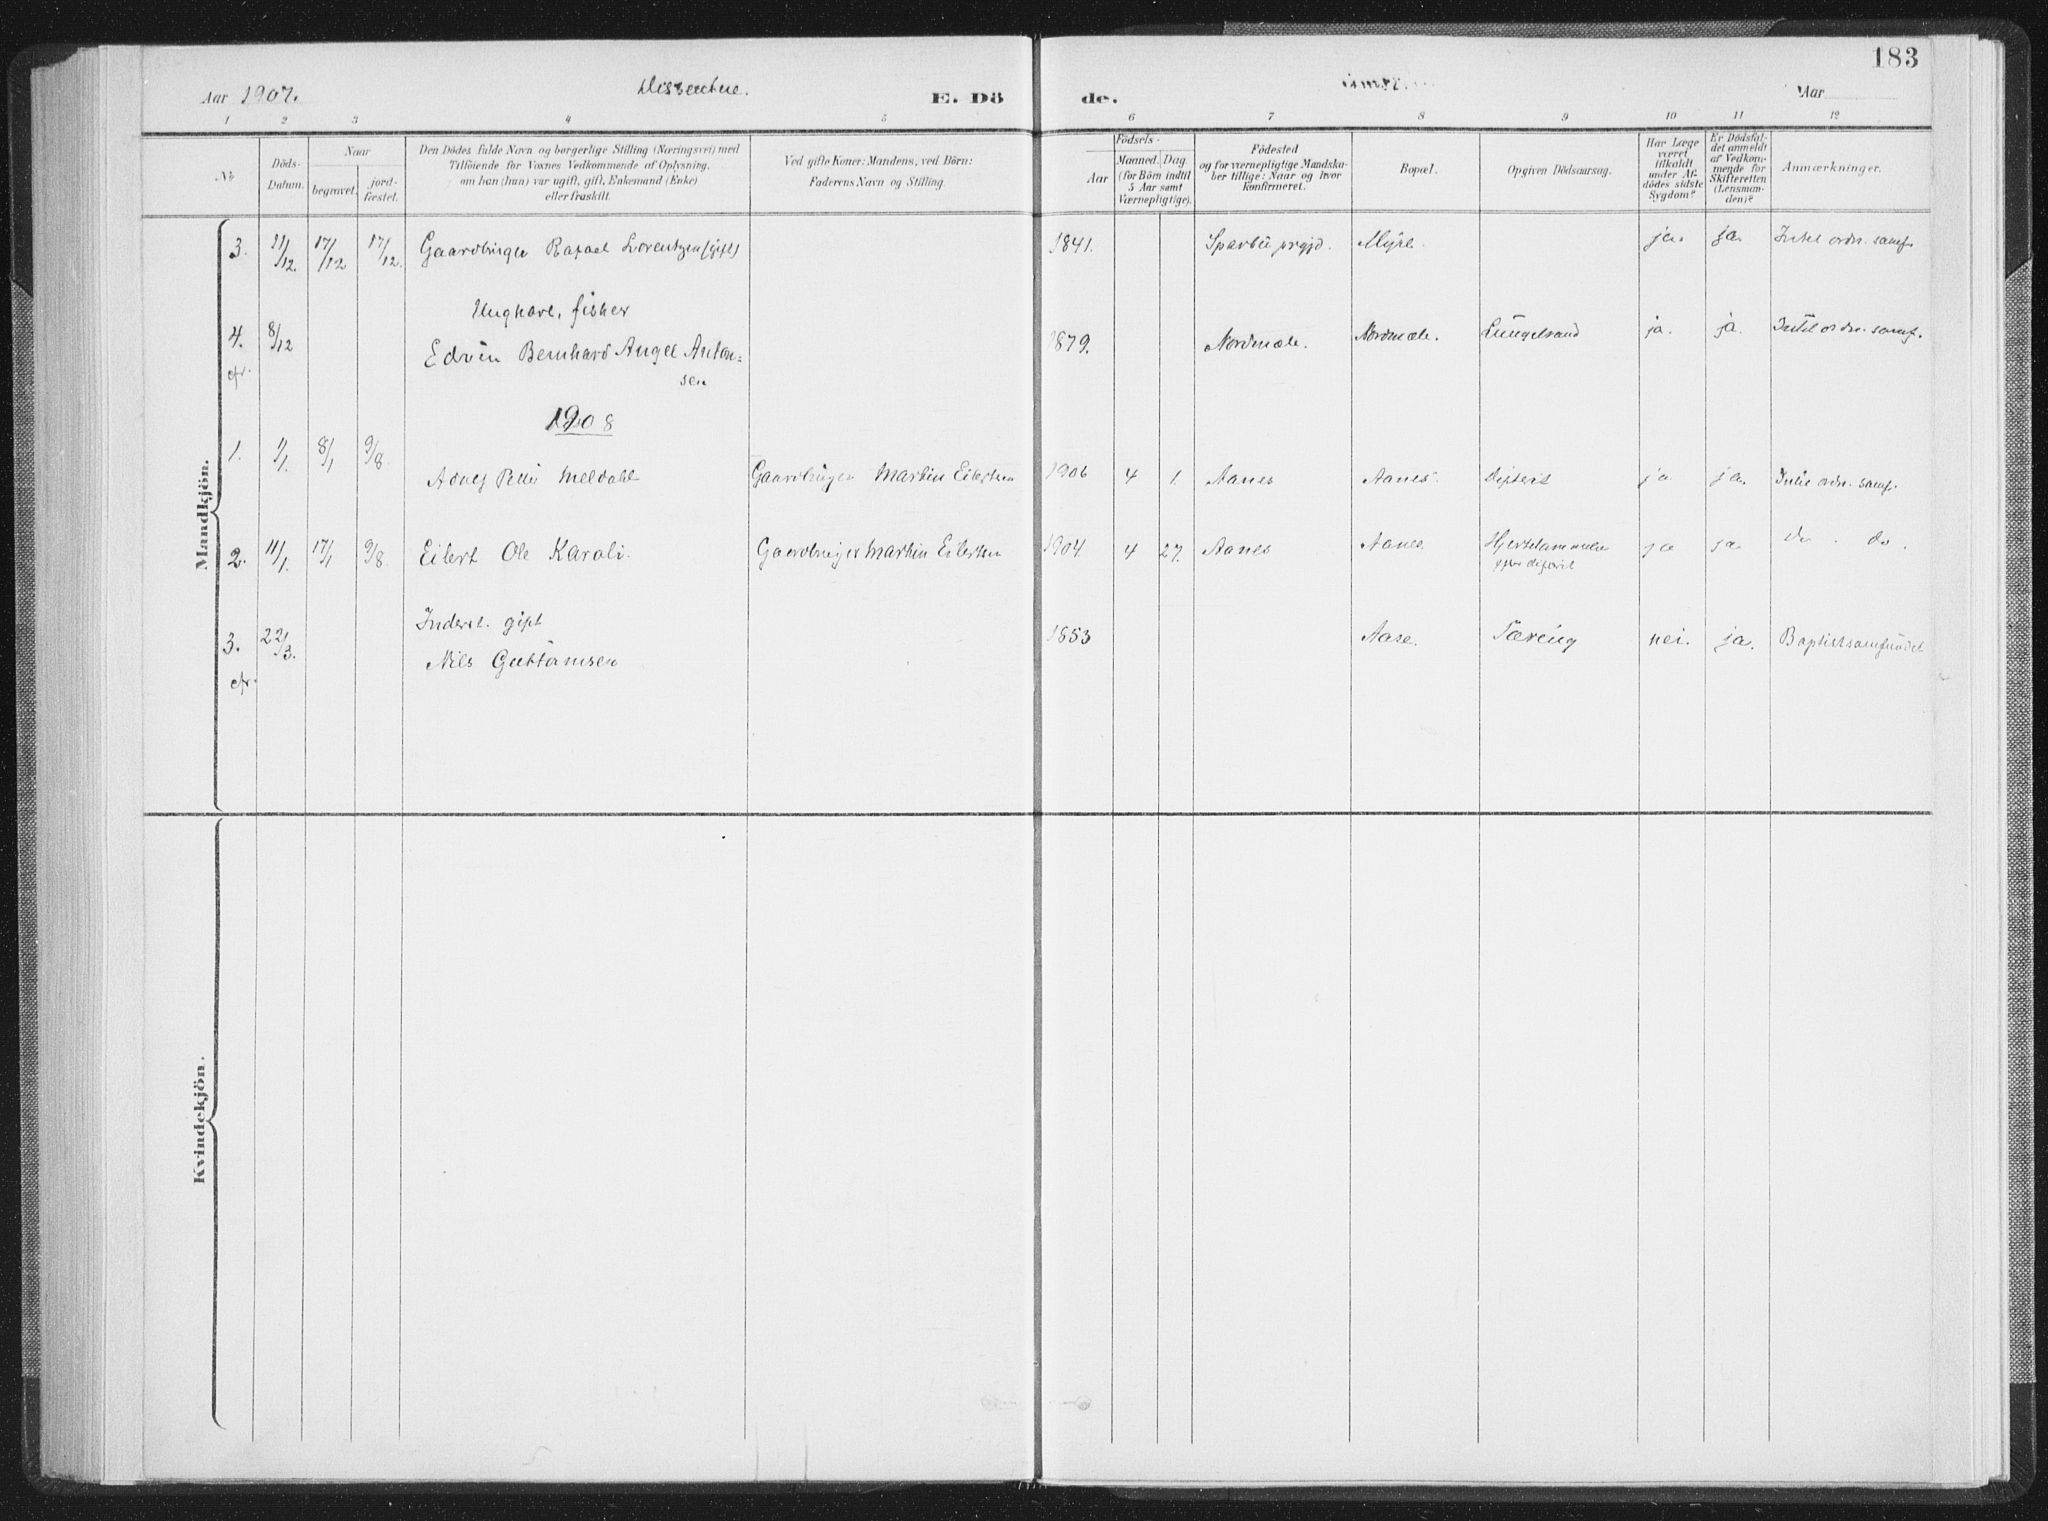 183
Aar 1907. Dissentere. E. Dö de. Aar
1 2 3 4 5 6 7 8 9 10 11 12
No
Döds-Datum.
Naar
begravet.
jord-fæstet.
Den Dödes fulde Navn og borgerlige Stilling (Næringsvei) med
Tilföiende for Voxnes Vedkommende af Oplysning,
om han (hun) var ugift, gift, Enkemand (Enke)
eller fraskilt.
Ved gifte Koner: Mandens, ved Börn:
Faderens Navn og Stilling.
Födsels-
Aar
Maaned. Dag.
(for Börn indtil
5 Aar samt
Værnepligtige).
Födested
og for værnepligtige Mandska-
ber tillige: Naar og hvor
Konfirmeret.
Bopæl.
Opgiven Dödsaarsag.
Har Læge
været
tilkaldt
under Af-
dödes sidste
Sygdom?
Er Dödsfal-
det anmeldt
af Vedkom-
mende for
Skifteretten
(Lensman-
den)?
Anmærkninger.
Mandkjön.
3. 11/12. 17/12 17/12. Gaardbruger Rafael Lorentzen (gift) 1841. Sparbu prgjd. Myre. ja. ja. Intet ordn. samf.
Ungkarl, fisker
4. 8/12 Edvin Bernhard Angel Anton= 1879. Nordmæle. Nordmæle. Lungebrand ja. ja. Intet ordn. samf.
cfr. sen
1908
1. 1/1. 8/1 9/8. Meldahl Gaardbruger Martin Eilertsen 1906 4 1. Aanes Aanes. Difterit ja ja. Intet ordn. samf.
2. 11/1. 17/1 9/8. Eilert Ole Karoli. Gaardbruger Martin Eilertsen 1904 4 27. Aanes Aanes. ja ja do. do.
difterit
Inderst. gift
3. 22/3. Nils Guttormsen 1853 Aase. Tæring nei. ja. Baptistsamfundet
cfr.
Kvindekjön.